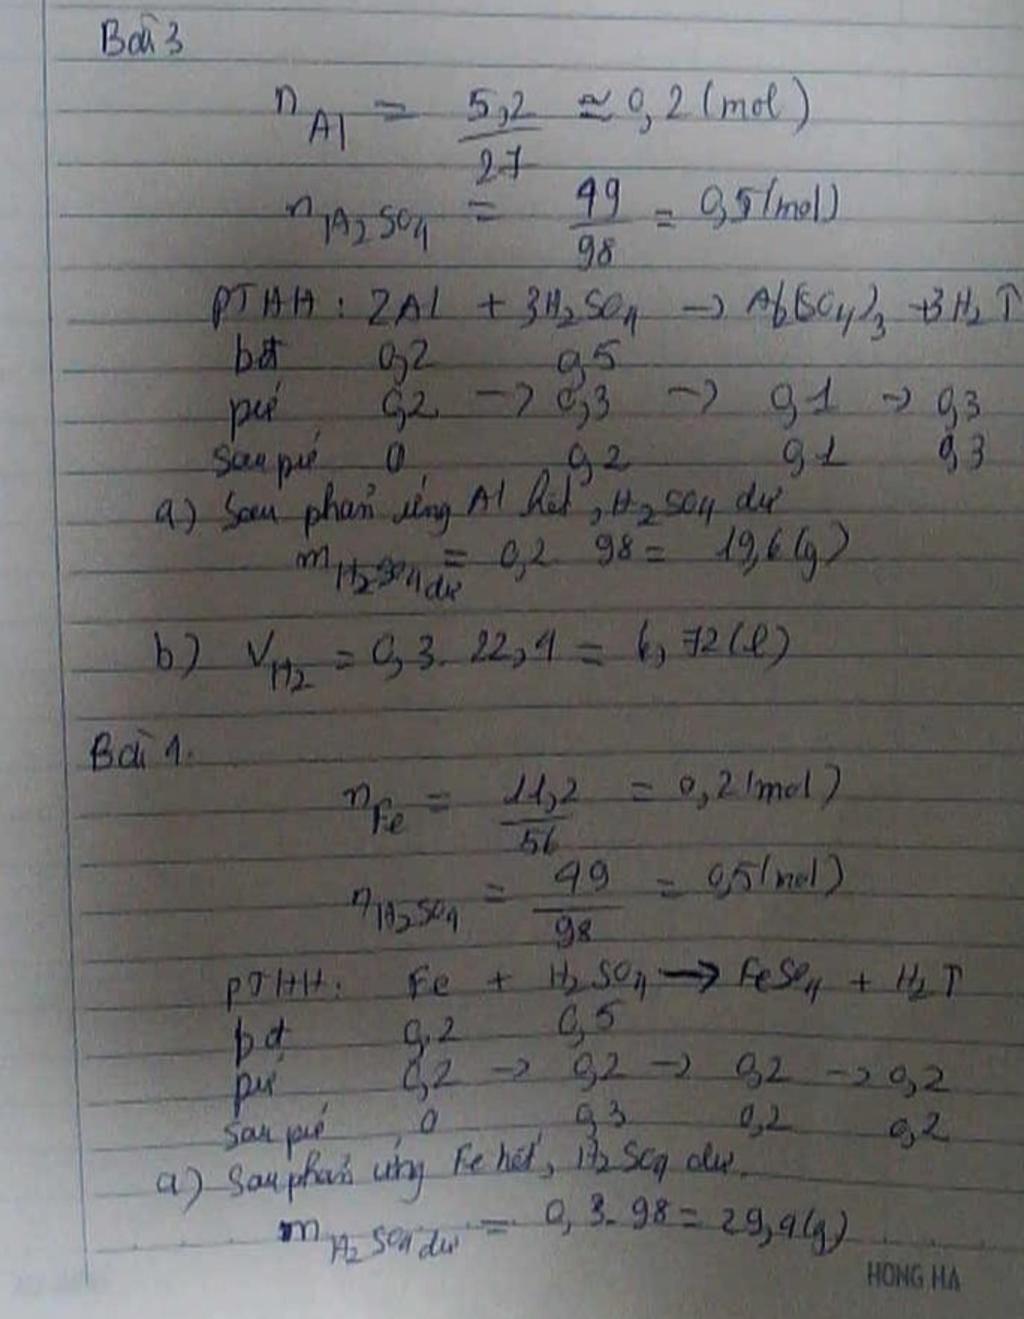 Bài 3
n Al = 5,2/27 ≈ 0,2 (mol)
n H2SO4 = 49/98 = 0,5 (mol)
PTHH: 2Al + 3H2SO4 → Al2(SO4)3 + 3H2↑
bđ 0,2 0,5
pứ 0,2 → 0,3 → 0,1 → 0,3
Sau pứ 0 0,2 0,1 0,3
a) Sau phản ứng Al hết, H2SO4 dư
m H2SO4 dư = 0,2 98 = 19,6 (g)
b) V H2 = 0,3. 22,4 = 6,72 (l)
Bài 4.
n Fe = 11,2/56 = 0,2 (mol)
n H2SO4 = 49/98 = 0,5 (mol)
PTHH: Fe + H2SO4 → FeSO4 + H2↑
bđ 0,2 0,5
pứ 0,2 → 0,2 → 0,2 → 0,2
Sau pứ 0 0,3 0,2 0,2
a) Sau phản ứng Fe hết, H2SO4 dư.
m H2SO4 dư = 0,3. 98 = 29,4 (g)
HONG HA